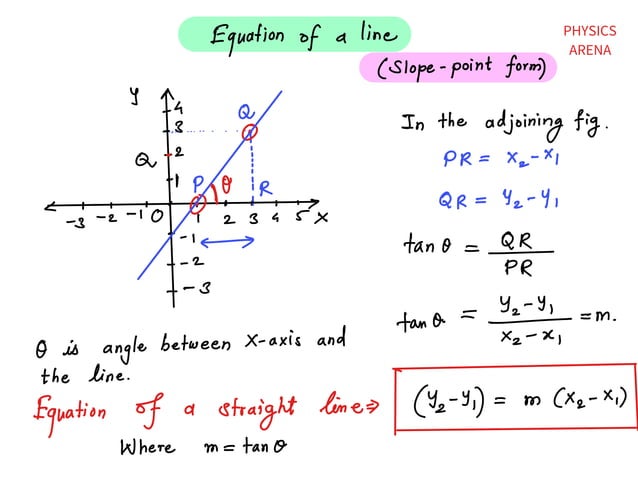 Equation of a line
PHYSICS
ARENA
(Slope-point form)
y
4
3
2
1
Q
Q
P
θ
R
-3 -2 -1 0 1 2 3 4 5 X
-1
-2
-3
In the adjoining fig.
PR = x₂-x₁
QR = y₂-y₁
tan θ = QR
PR
tan θ = y₂-y₁ = m.
x₂-x₁
θ is angle between X-axis and
the line.
Equation of a straight line ⇒ (y₂-y₁) = m (x₂-x₁)
Where m = tan θ